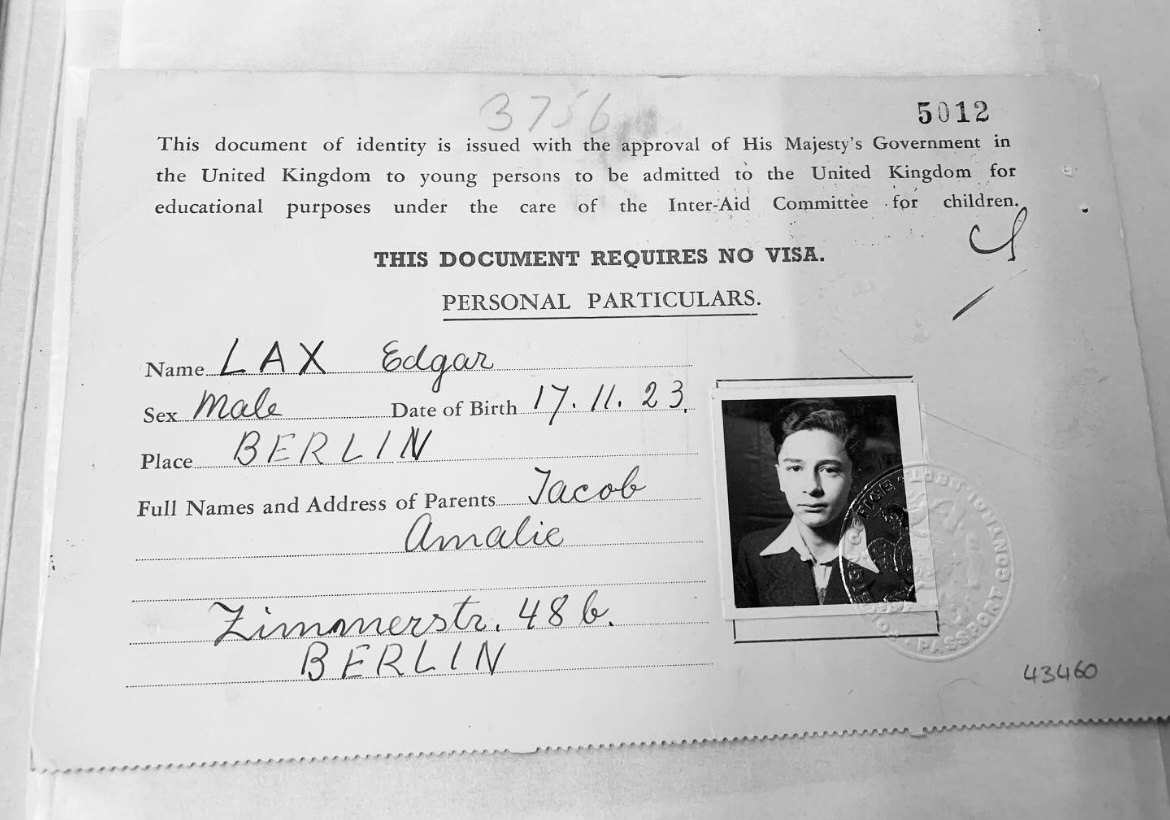 3756
5012
This document of identity is issued with the approval of His Majesty's Government in
the United Kingdom to young persons to be admitted to the United Kingdom for
educational purposes under the care of the Inter-Aid Committee for children.
THIS DOCUMENT REQUIRES NO VISA.
PERSONAL PARTICULARS.
Name LAX Edgar
Sex Male Date of Birth 17.11.23.
Place BERLIN
Full Names and Address of Parents Jacob
Amalie
Zimmerstr. 48 b.
BERLIN
PASSPORT CONTROL
43460